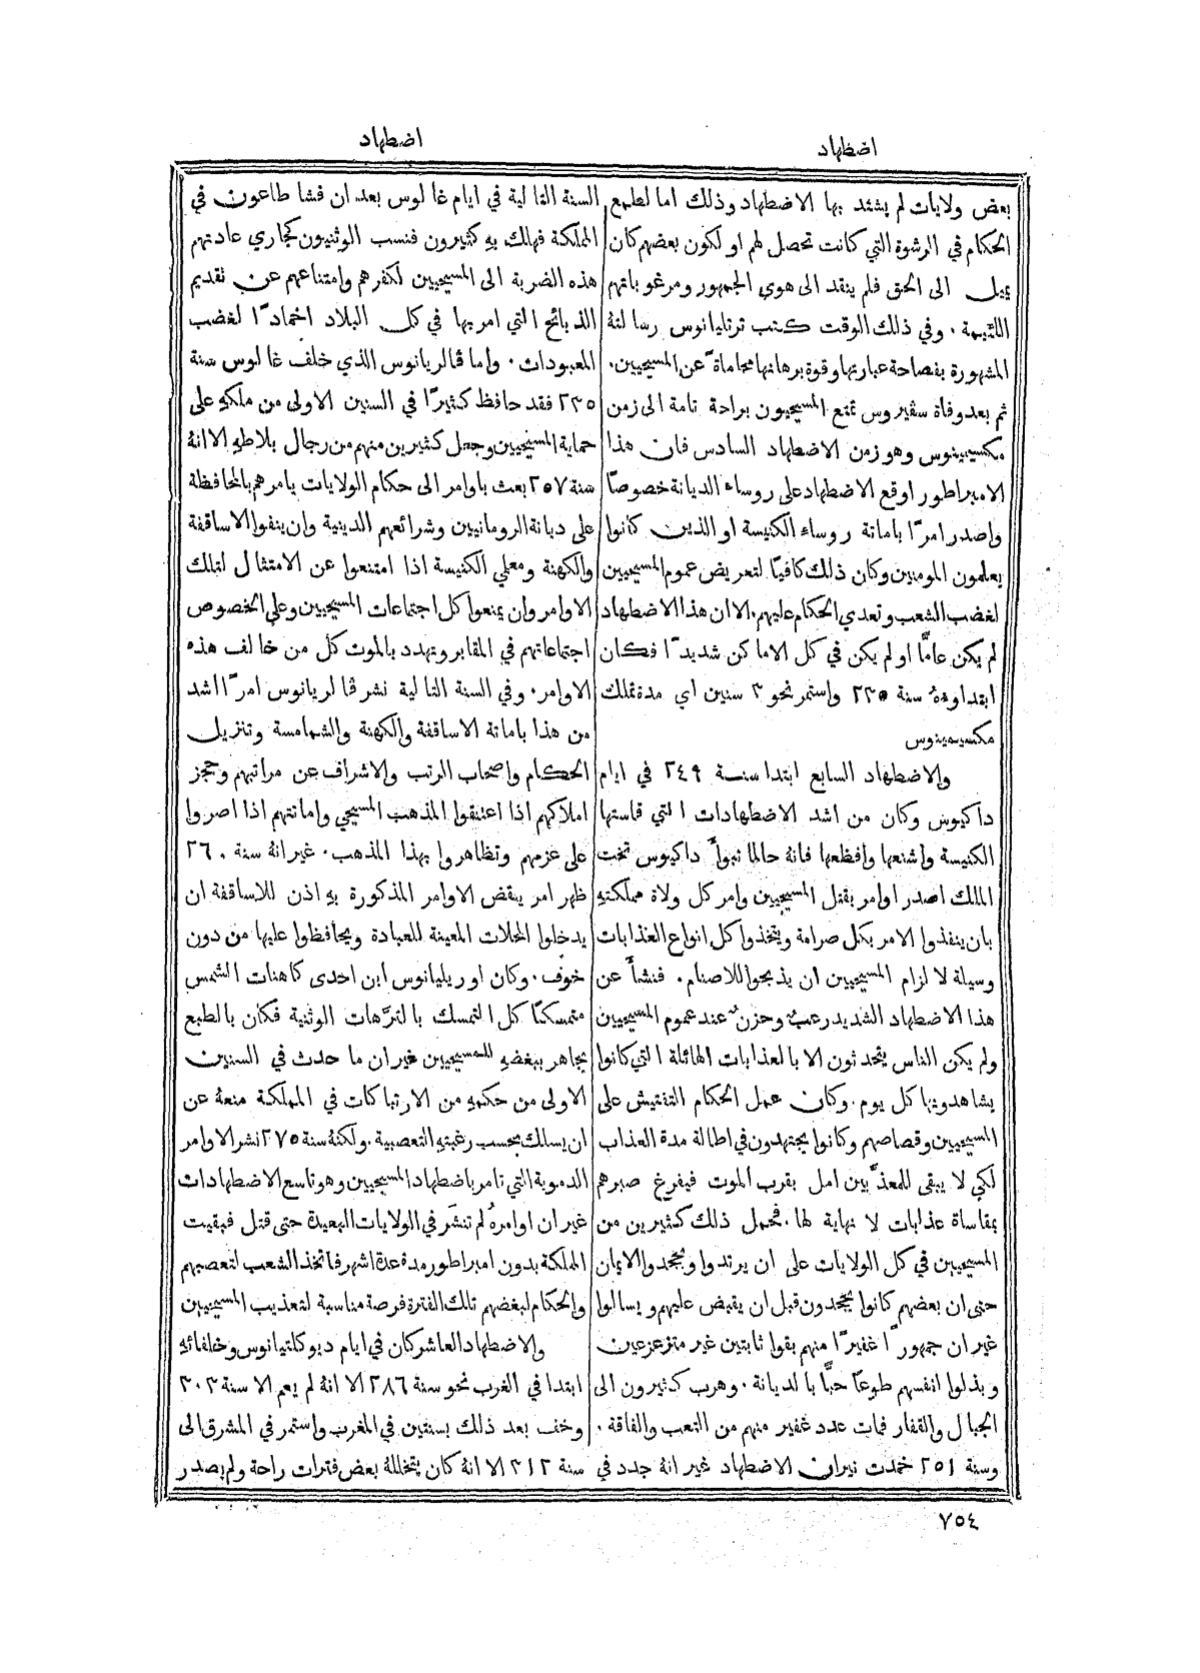 اضطهاد
اضطهاد
بعض ولايات لم يشتد بها الاضطهاد وذلك اما لطمع
الحكام في الرشوة التي كانت تحصل لهم او لكون بعضهم كان
يميل الى الحق فلم ينقد الى هوى الجمهور ومرغوباتهم
اللئيمة. وفي ذلك الوقت كتب ترتليانوس رسالتهُ
المشهورة بفصاحة عبارتها وقوة برهانها محاماةً عن المسيحيين.
ثم بعد وفاة سڤيروس تمتع المسيحيون براحة تامة الى زمن
مكسيمينوس وهو زمن الاضطهاد السادس فان هذا
الامبراطور اوقع الاضطهاد على روساء الديانة خصوصًا
واصدر امرًا باماتة روساء الكنيسة او الذين كانوا
يعلمون المومنين وكان ذلك كافيًا لتعريض عموم المسيحيين
لغضب الشعب وتعدي الحكام عليهم. الا ان هذا الاضطهاد
لم يكن عامًّا او لم يكن في كل الاماكن شديدًا فكان
ابتداوهُ سنة ٢٣٥ واستمر نحو ٣ سنين اي مدة تملك
مكسيمينوس
والاضطهاد السابع ابتدا سنة ٢٤٩ في ايام
داكيوس وكان من اشد الاضطهادات التي قاستها
الكنيسة واشنعها وافظعها فانهُ حالما تبوأ داكيوس تخت
الملك اصدر اوامر بقتل المسيحيين وامر كل ولاة مملكتهِ
بان ينفذوا الامر بكل صرامة ويتخذوا كل انواع العذابات
وسيلة لالزام المسيحيين ان يذبحوا للاصنام. فنشأ عن
هذا الاضطهاد الشديد رعبٌ وحزنٌ عند عموم المسيحيين
ولم يكن الناس يتحدثون الا بالعذابات الهائلة التي كانوا
يشاهدونها كل يوم. وكان عمل الحكام التفتيش على
المسيحيين وقصاصهم وكانوا يجتهدون في اطالة مدة العذاب
لكي لا يبقى للمعذَّبين امل بقرب الموت فيفرغ صبرهم
بمقاساة عذابات لا نهاية لها. فحمل ذلك كثيرين من
المسيحيين في كل الولايات على ان يرتدوا ويجحدوا الايمان
حتى ان بعضهم كانوا يجحدون قبل ان يقبض عليهم ويسالوا
غير ان جمهورًا غفيرًا منهم بقوا ثابتين غير متزعزعين
وبذلوا انفسهم طوعًا حبًّا بالديانة. وهرب كثيرون الى
الجبال والقفار فمات عدد غفير منهم من التعب والفاقة.
وسنة ٢٥١ خمدت نيران الاضطهاد غير انهُ جدد في
السنة التالية في ايام غالوس بعد ان فشا طاعون في
المملكة فهلك بهِ كثيرون فنسب الوثنيون كجاري عادتهم
هذه الضربة الى المسيحيين لكفرهم وامتناعهم عن تقديم
الذبائح التي امر بها في كل البلاد اخمادًا لغضب
المعبودات. واما ڤالريانوس الذي خلف غالوس سنة
٢٣٥ فقد حافظ كثيرًا في السنين الاولى من ملكهِ على
حماية المسيحيين وجعل كثيرين منهم من رجال بلاطهِ الا انهُ
سنة ٢٥٧ بعث باوامر الى حكام الولايات يامرهم بالمحافظة
على ديانة الرومانيين وشرائعهم الدينية وان ينفوا الاساقفة
والكهنة ومعلمي الكنيسة اذا امتنعوا عن الامتثال لتلك
الاوامر وان يمنعوا كل اجتماعات المسيحيين وعلى الخصوص
اجتماعاتهم في المقابر وتهدد بالموت كل من خالف هذه
الاوامر. وفي السنة التالية نشر ڤالريانوس امرًا اشد
من هذا باماتة الاساقفة والكهنة والشمامسة وتنزيل
الحكام واصحاب الرتب والاشراف عن مراتبهم وحجز
املاكهم اذا اعتنقوا المذهب المسيحي واماتتهم اذا اصروا
على عزمهم وتظاهروا بهذا المذهب. غير انهُ سنة ٢٦٠
ظهر امر ينقض الاوامر المذكورة بهِ اذن للاساقفة ان
يدخلوا المحلات المعينة للعبادة ويحافظوا عليها من دون
خوف. وكان اوريليانوس ابن احدى كاهنات الشمس
متمسكًا كل التمسك بالترَّهات الوثنية فكان بالطبع
يجاهر ببغضهِ للمسيحيين غير ان ما حدث في السنين
الاولى من حكمهِ من الارتباكات في المملكة منعهُ عن
ان يسلك بحسب رغبتهِ التعصبية. ولكنهُ سنة ٢٧٥ نشر الاوامر
الدموية التي تامر باضطهاد المسيحيين وهو تاسع الاضطهادات
غير ان اوامرهُ لم تنشَر في الولايات البعيدة حتى قتل فبقيت
المملكة بدون امبراطور مدة عدة اشهر فاتخذ الشعب لتعصبهم
والحكام لبغضهم تلك الفترة فرصة مناسبة لتعذيب المسيحيين
والاضطهاد العاشر كان في ايام ديوكلتيانوس وخلفائهِ
ابتدا في الغرب نحو سنة ٢٨٦ الا انهُ لم يعم الا سنة ٣٠٣
وخف بعد ذلك بسنتين في المغرب واستمر في المشرق الى
سنة ٣١٢ الا انهُ كان يتخللهُ بعض فترات راحة ولم يصدر
٧٥٤